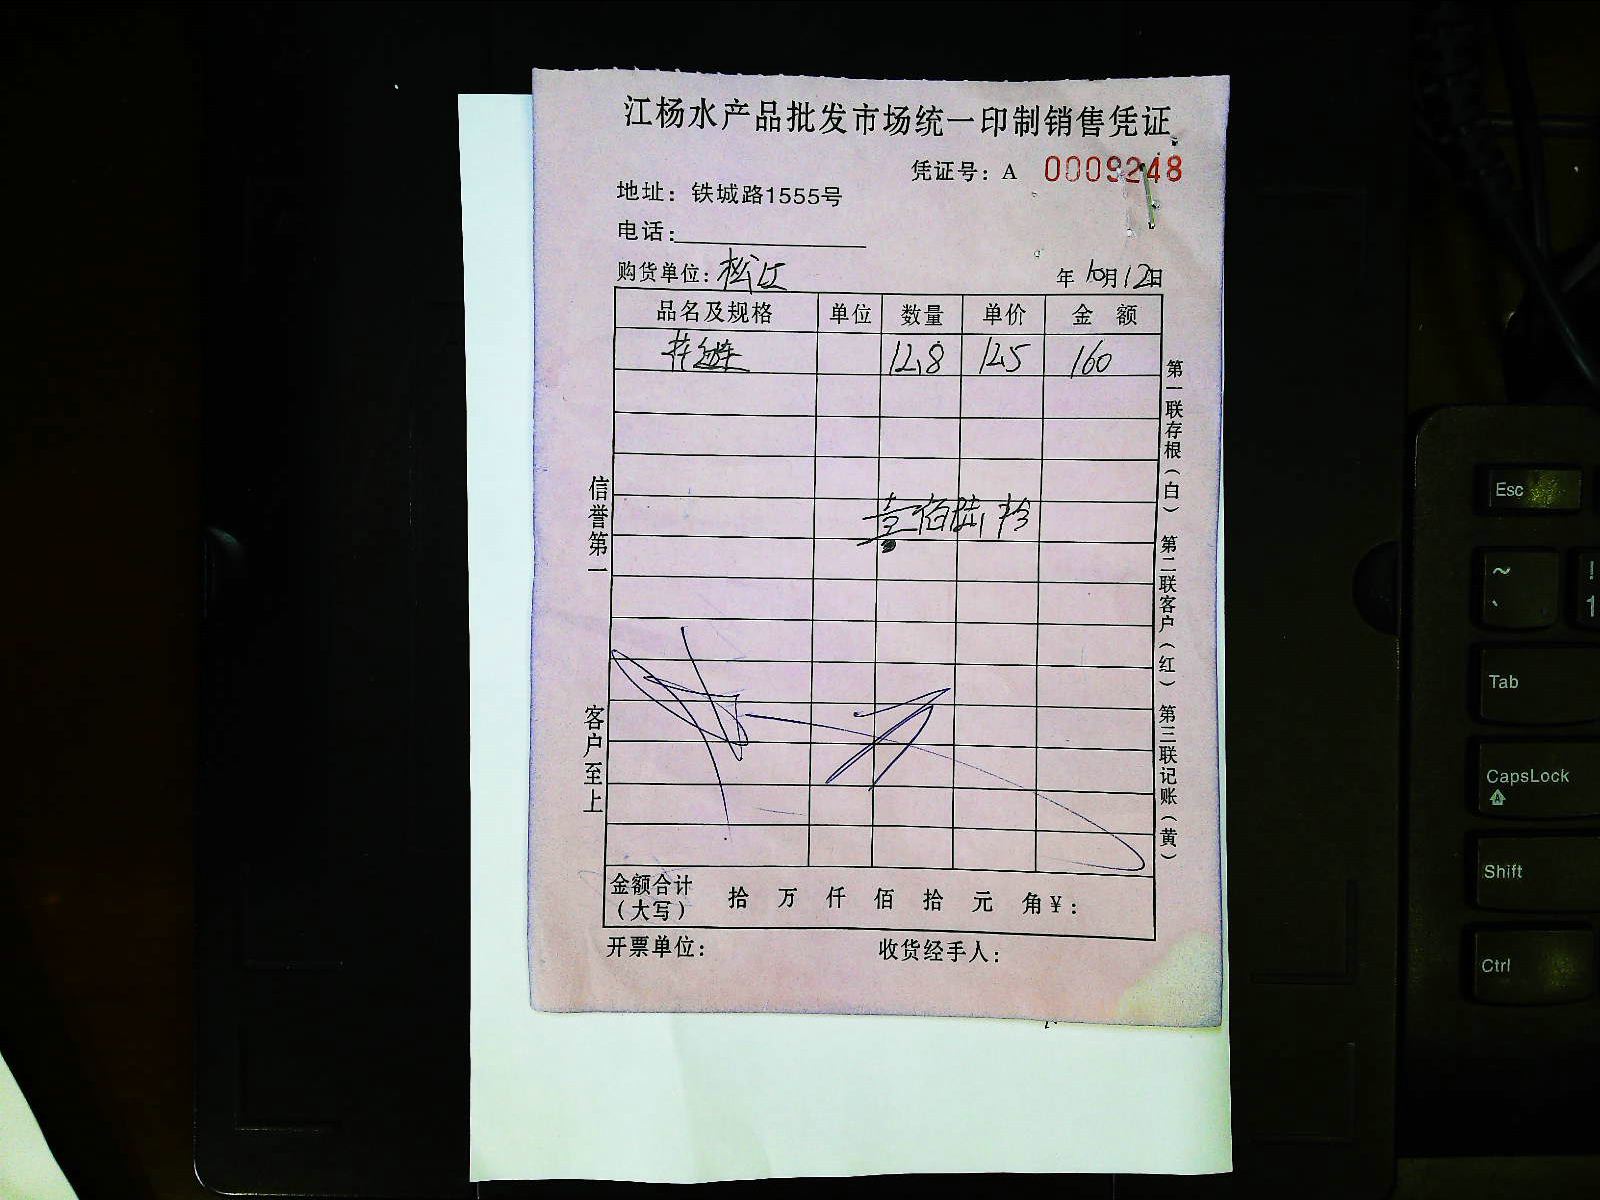 江杨水产品批发市场统一印制销售凭证
凭证号：A 0009248
地址：铁城路1555号
电话：
购货单位：松江 年10月12日
品名及规格 单位 数量 单价 金 额
12.8 12.5 160
壹佰陆拾
金额合计（大写） 拾 万 仟 佰 拾 元 角¥：
开票单位： 收货经手人：
信誉第一
客户至上
第一联存根（白） 第二联客户（红） 第三联记账（黄）
Esc
~
、
!
1
Tab
CapsLock
Shift
Ctrl